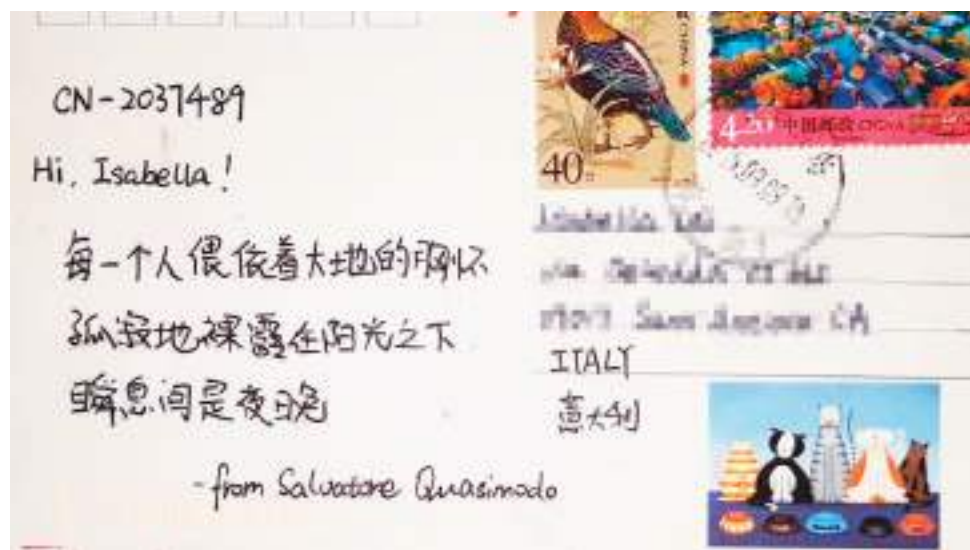 CN-2037489
Hi, Isabella!
每一个人偎依着大地的胸怀
孤寂地裸露在阳光之下
瞬息间是夜晚
-from Salvatore Quasimodo
40
4.20 中国邮政 CHINA
ITALY
意大利